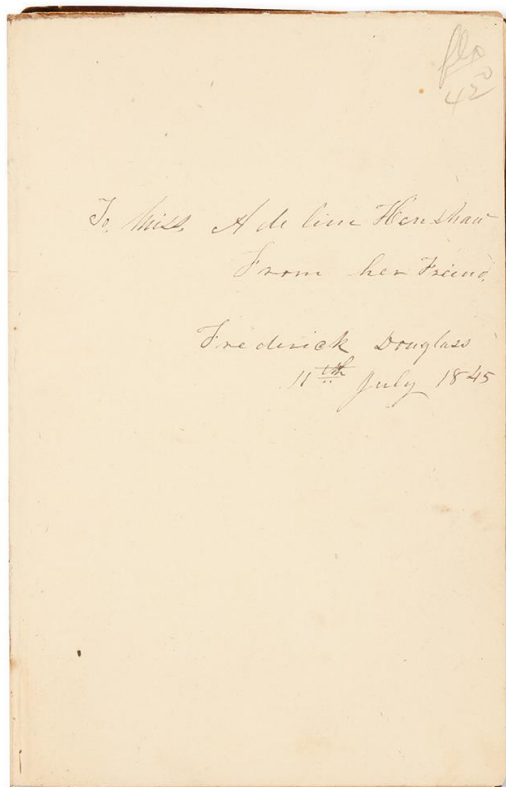 42
To, Miss, Adeline Henshaw
From her Friend,
Frederick Douglass
11th July 1845